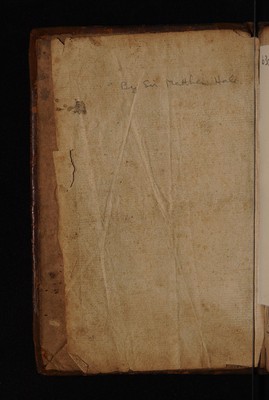 By Sir Matthew Hale